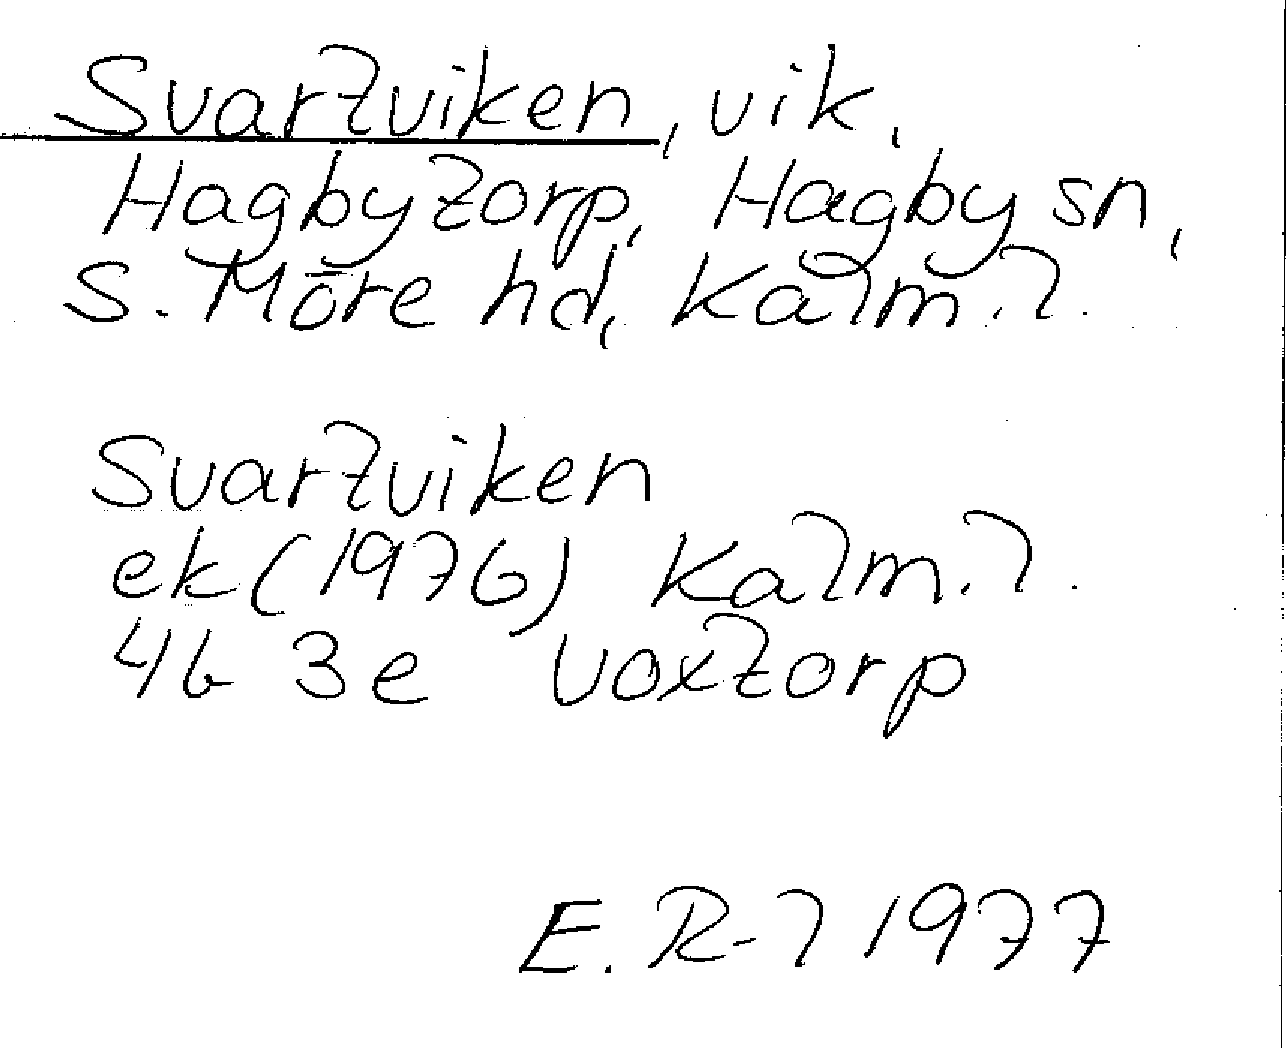 Svartviken, vik,
Hagbytorp, Hagby sn,
S. Möre hd, Kalm. l.
Svartviken
ek (1976) Kalm. l.
4b 3e Voxtorp
E. R-l 1977